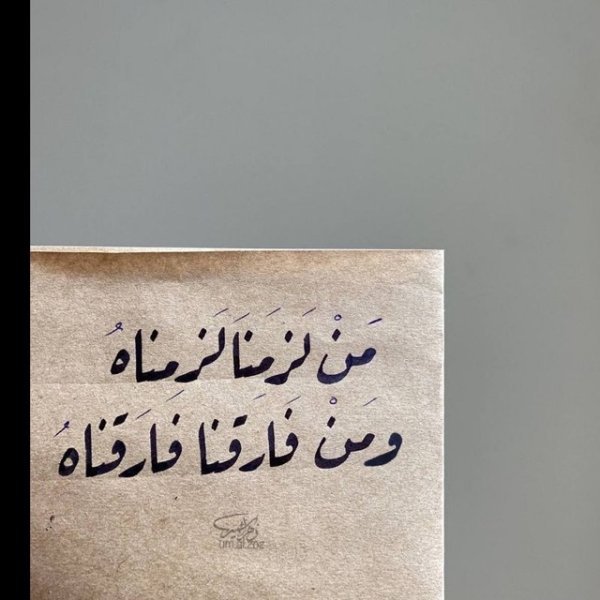 مَنْ لَزِمَنَا لَزِمناهُ
ومَنْ فَارَقنا فَارَقناهُ